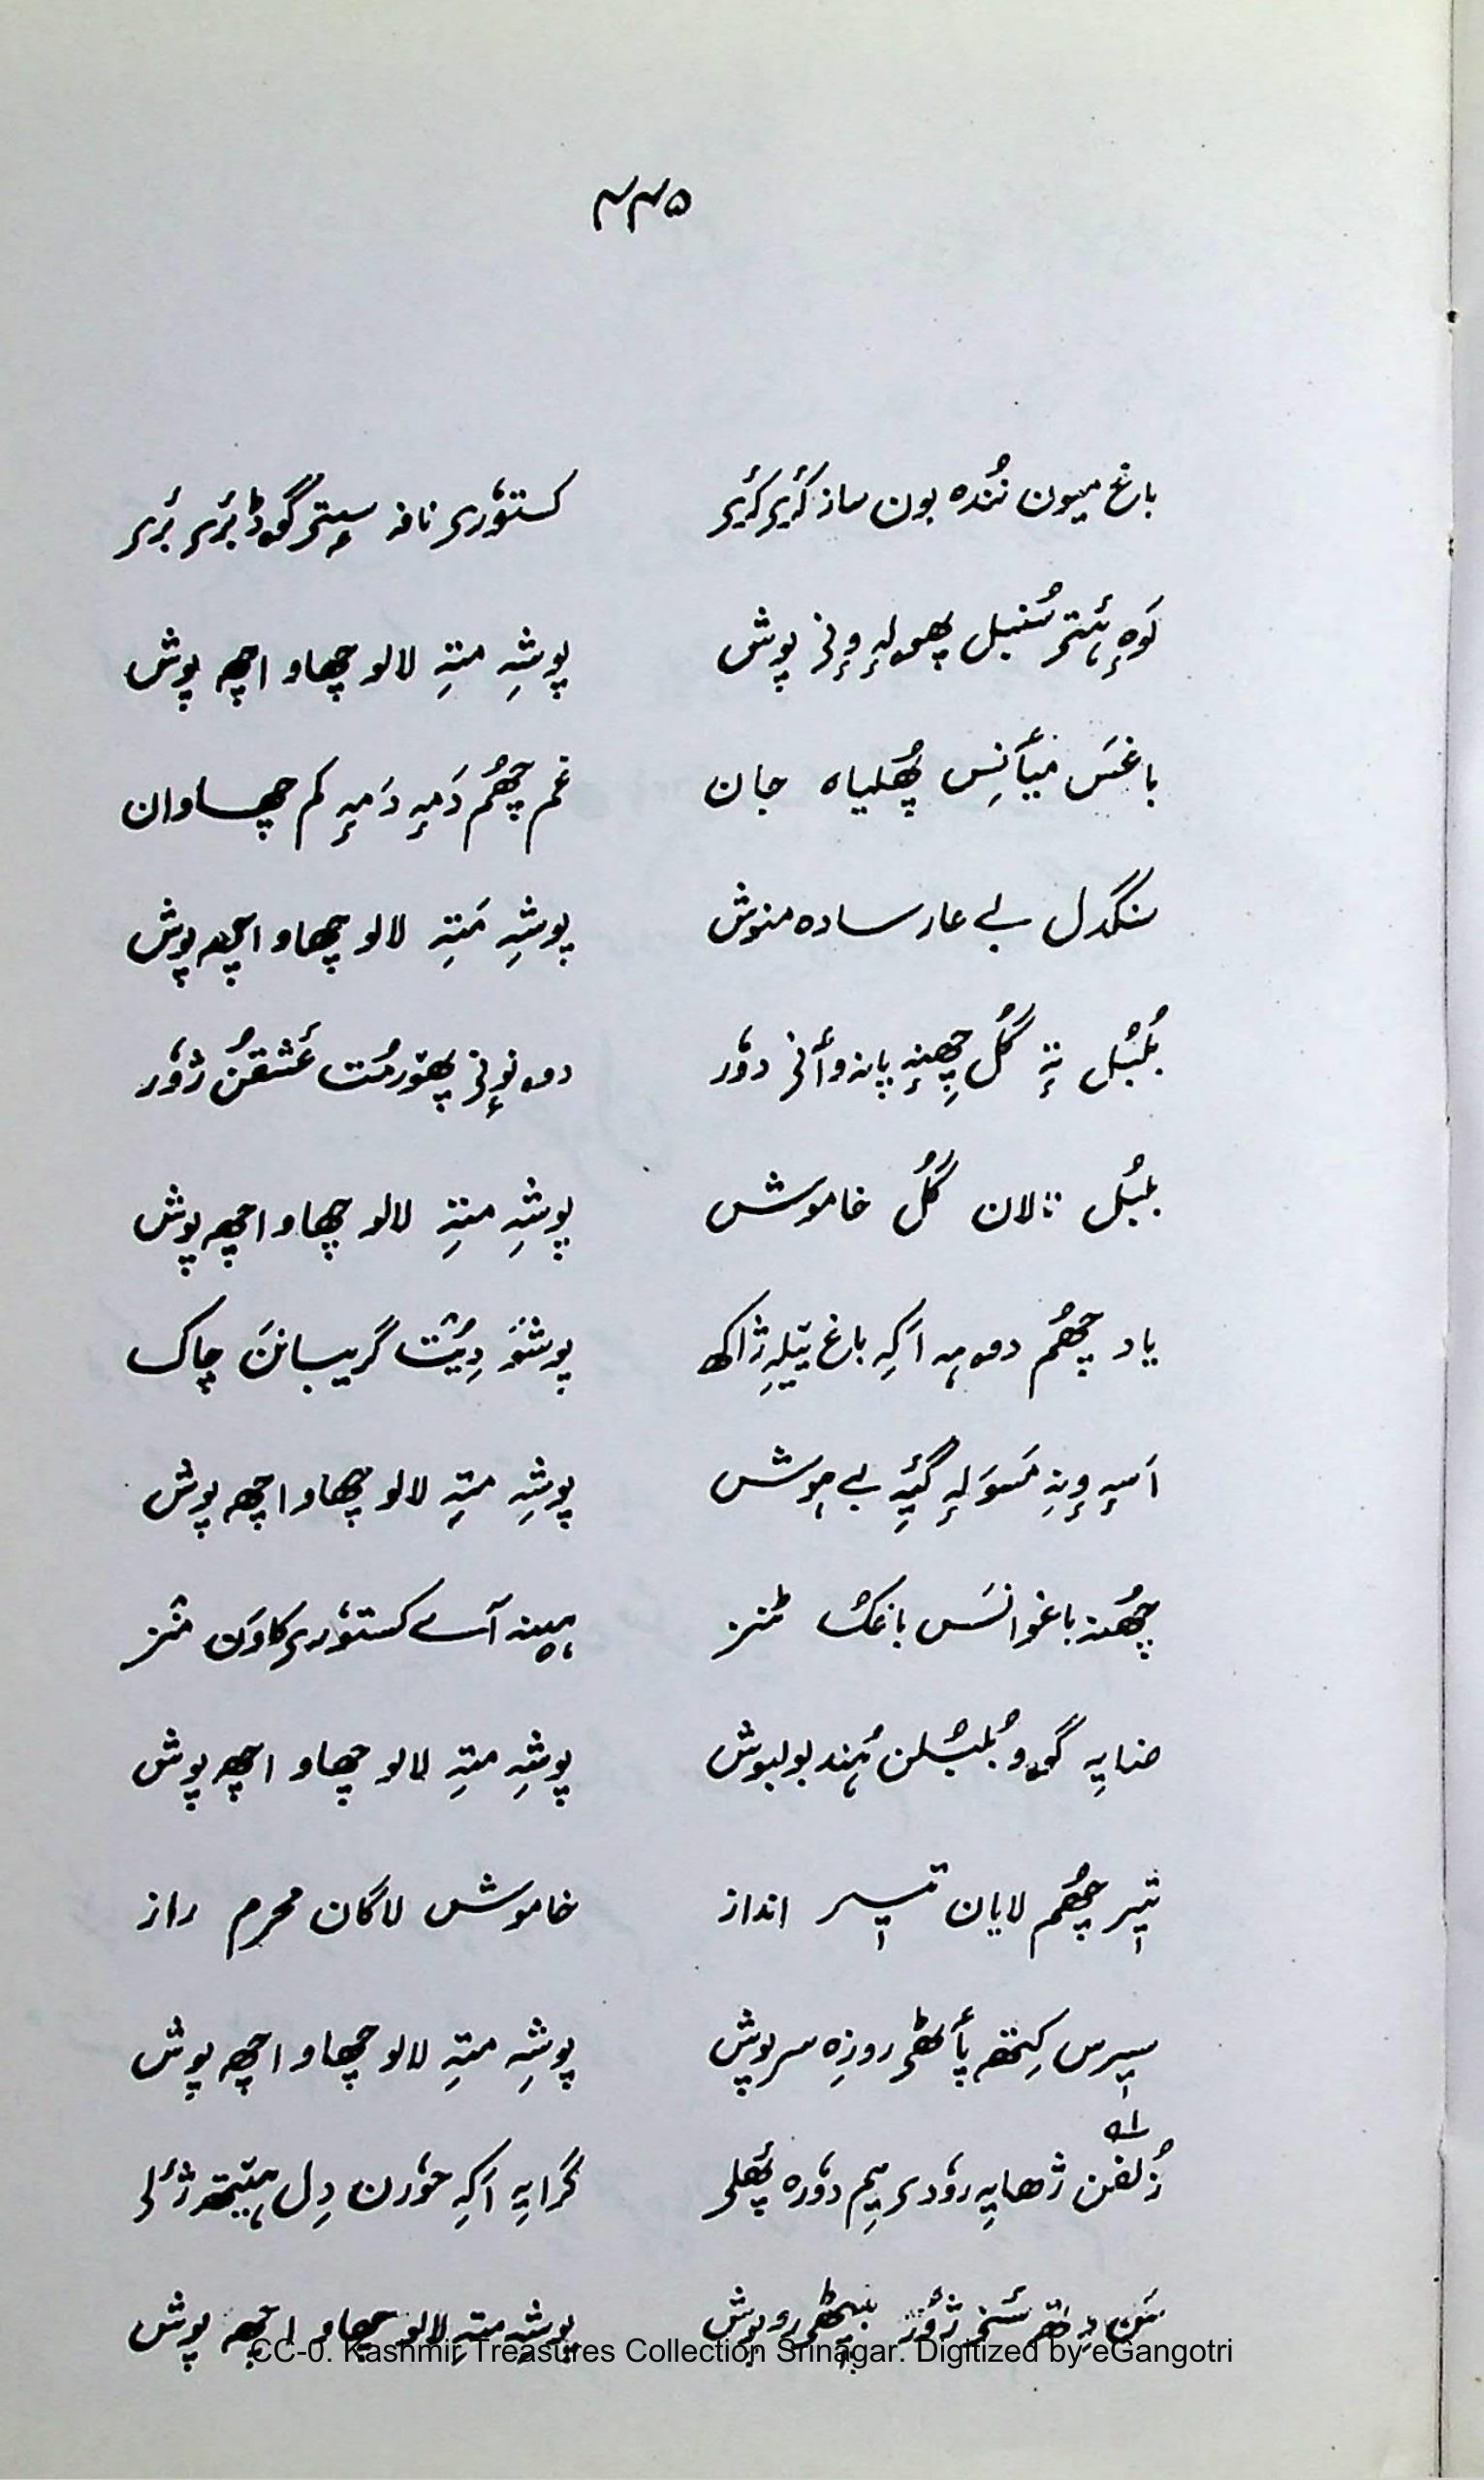 ۴۴۵
باغ میون نُندہ بون ساز کٔری کٔری کستوٗری نافہ سٟتی گوڈ بٔری بٔری
سُنبل پھولہٕ وٕنی پوش پوشہِ متہِ لالو چھاو اچھہ پوش
باغَس میٲنِس پھُلیاہ جان غم چھُم دَمہٕ دَمہٕ کم چھاوان
سنگدل بے عار سادہ منوش پوشہِ مَتہِ لالو چھاو اچھہ پوش
بُلبُل تہٕ گُل چھِنہٕ پانہ وٲنی دوٗر دوہ نوٕنی پھوٗرمُت عَشقُن ژوٗر
بلبُل نالان گُل خاموش پوشہِ متہِ لالو چھاو اچھہ پوش
یاد چھُم دوہہ اَکہِ باغ تیلہِ ژاکھ پوشَو دِیُت گریبانَن چاک
اَسہِ وٕنہِ مَسوَلہٕ گیہِ بے ہوش پوشہِ متہِ لالو چھاو اچھہ پوش
چھُنہ باغوانَس باغُک منز ہیینہ آسے کستوٗری کاوَن منز
ضایہِ گوو بُلبُلن ہُند بولبوش پوشہِ متہِ لالو چھاو اچھہ پوش
تیر چھُم لایان تیر انداز خاموش لاگان محرم راز
سیرس کِتھہ پٲٹھی روزِہ سرپوش پوشہِ متہِ لالو چھاو اچھہ پوش
زُلفن ژھایہِ روٗدی یِم دوٗرہ پھَلی گرایہِ اَکہِ حوٗرن دِل ہیتھ ژٔلی
ژوٗرَ بیٹھی روپوش پوشہِ متہِ لالو چھاو اچھہ پوش
CC-0. Kashmir Treasures Collection Srinagar. Digitized by eGangotri